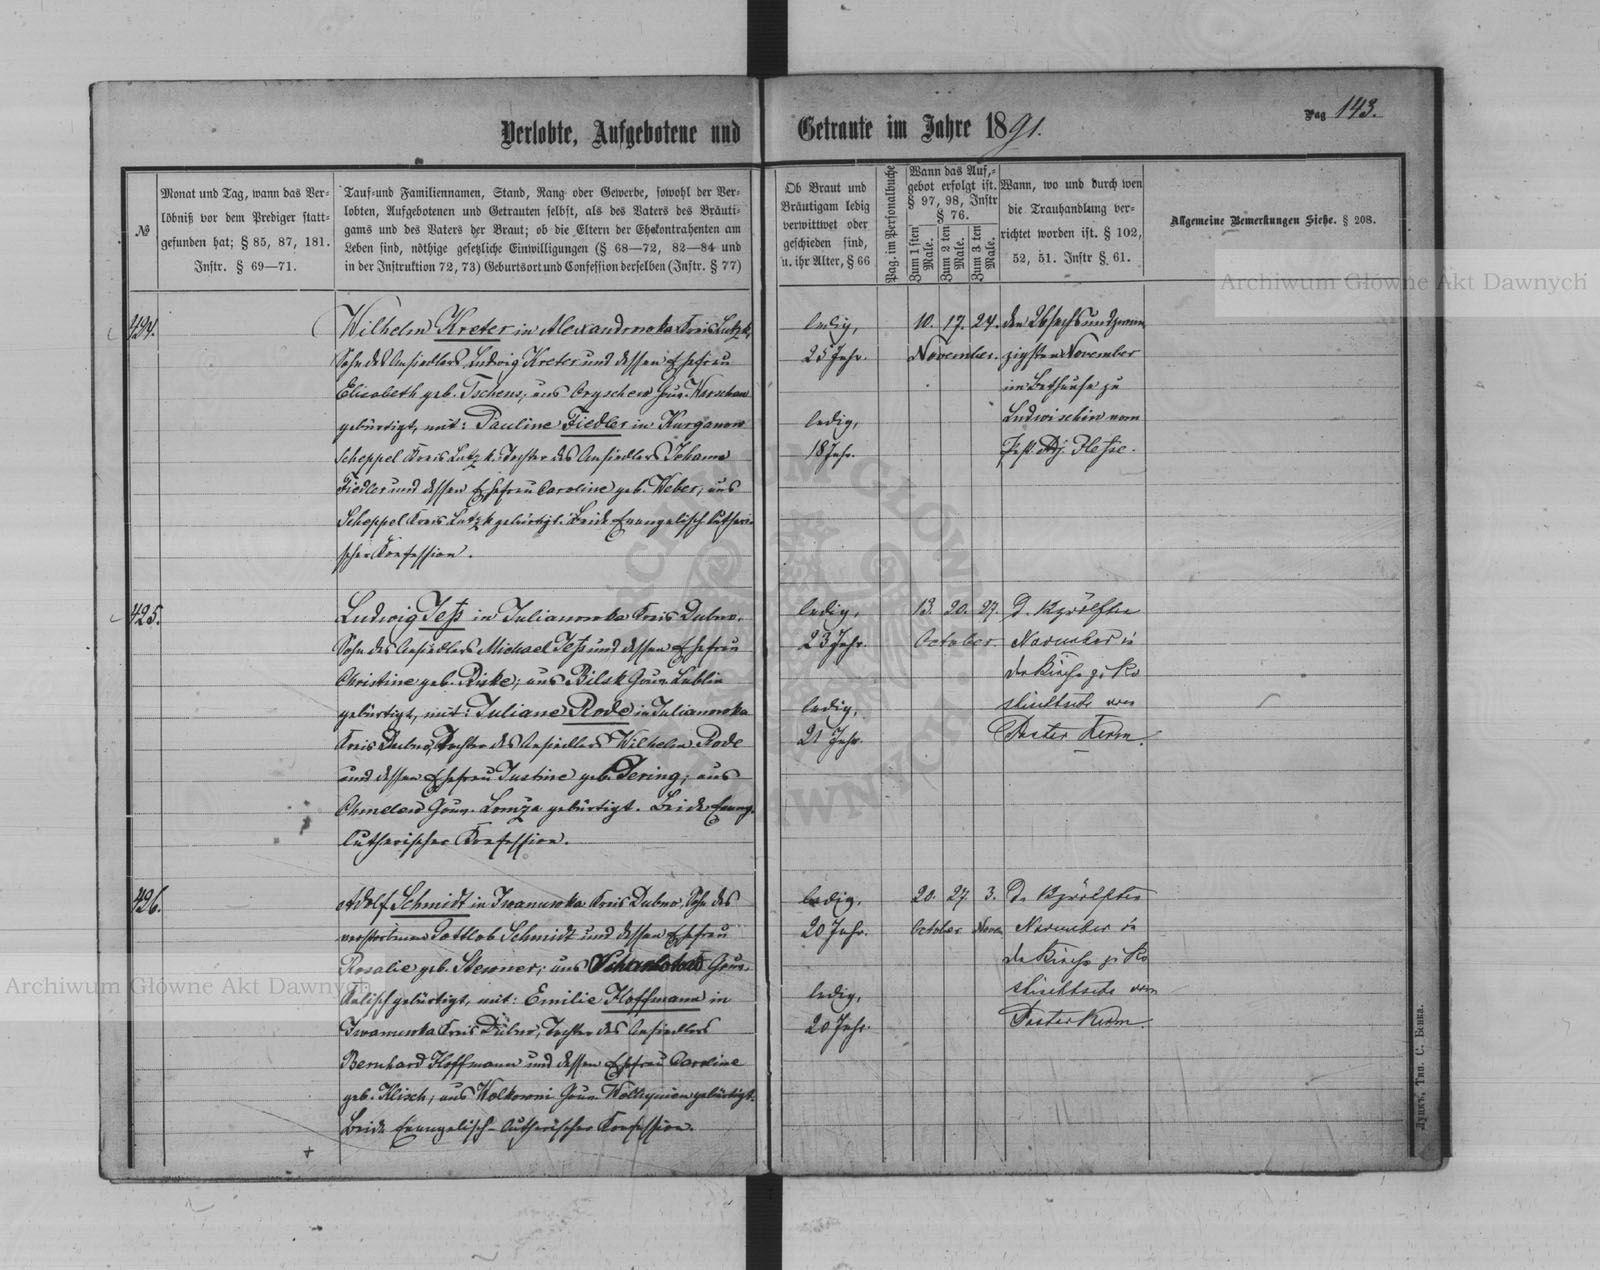 Verlobte, Aufgebotene und Getraute im Jahre 1891.
Pag 143.
№
Monat und Tag, wann das Ver-
löbniß vor dem Prediger statt-
gefunden hat; § 85, 87, 181.
Instr. § 69—71.
Tauf- und Familiennamen, Stand, Rang oder Gewerbe, sowohl der Ver-
lobten, Aufgebotenen und Getrauten selbst, als des Vaters des Bräuti-
gams und des Vaters der Braut; ob die Eltern der Ehekontrahenten am
Leben sind, nöthige gesetzliche Einwilligungen (§ 68—72, 82—84 und
in der Instruktion 72, 73) Geburtsort und Confession derselben (Instr. § 77)
Ob Braut und
Bräutigam ledig
verwittwet oder
geschieden sind,
u. ihr Alter, § 66
Pag. im Personalbuche
Wann das Auf-
gebot erfolgt ist.
§ 97, 98, Instr
§ 76.
Zum 1 sten Male.
Zum 2 ten Male.
Zum 3 ten Male.
Wann, wo und durch wen
die Trauhandlung ver-
richtet worden ist. § 102,
52, 51. Instr § 61.
Allgemeine Bemerkungen Siehe. § 208.
Archiwum Główne Akt Dawnych
424.
Wilhelm Kreter in Alexandrowka Kreis Lutzk,
Sohn des Ansiedlers Ludwig Kreter und dessen Ehefrau
Elisabeth geb. Tschens, aus Oryschew Gouv. Warschau
gebürtigt, mit: Pauline Fiedler in Kurganow
Scheppel Kreis Lutzk, Tochter des Ansiedlers Johann
Fiedler und dessen Ehefrau Caroline geb. Weber, aus
Scheppel Kreis Lutzk gebürtigt. Beide Evangelisch-lutheri-
scher Konfession.
ledig,
25 Jahr.
ledig,
18 Jahr.
10. 17. 24.
November.
den 26 sechsundzwan
zigsten November
im Bethause zu
Ludwischin vom
Past. Adj.
425.
Ludwig Jeß in Julianowka Kreis Dubno.
Sohn des Ansiedlers Michael Jeß und dessen Ehefrau
Christine geb. Riske, aus Bilsk Gouv. Lublin
gebürtigt, mit: Juliane Rode in Julianowka
Kreis Dubno, Tochter des Ansiedlers Wilhelm Rode
und dessen Ehefrau Justine geb. Jering, aus
Gouv. Lomza gebürtigt. Beide Evang.
lutherischer Konfession.
ledig,
23 Jahr.
ledig,
21 Jahr.
13. 20. 27.
October.
D. 12 zwölften
November in
der Kirche z. Ro
schischtsche vom
Pastor Kerm.
426.
Adolf Schmidt in Iwanowka Kreis Dubno, Sohn des
verstorbenen Gottlob Schmidt und dessen Ehefrau
Rosalie geb. aus Gouv.
Kalisch gebürtigt, mit: Emilie Hoffmann in
Iwanowka Kreis Dubno, Tochter des Ansiedlers
Bernhard Hoffmann und dessen Ehefrau Caroline
geb. Klisch, aus Wolkowni Gouv. Wolhynien gebürtigt.
Beide Evangelisch-lutherischer Konfession.
ledig,
20 Jahr.
ledig,
20 Jahr.
20. 27. 3.
October Novem
D. 12 zwölften
November in
der Kirche z. Ro
schischtsche vom
Pastor Kerm.
Archiwum Główne Akt Dawnych
Луцкъ, Тип. С. Бенка.